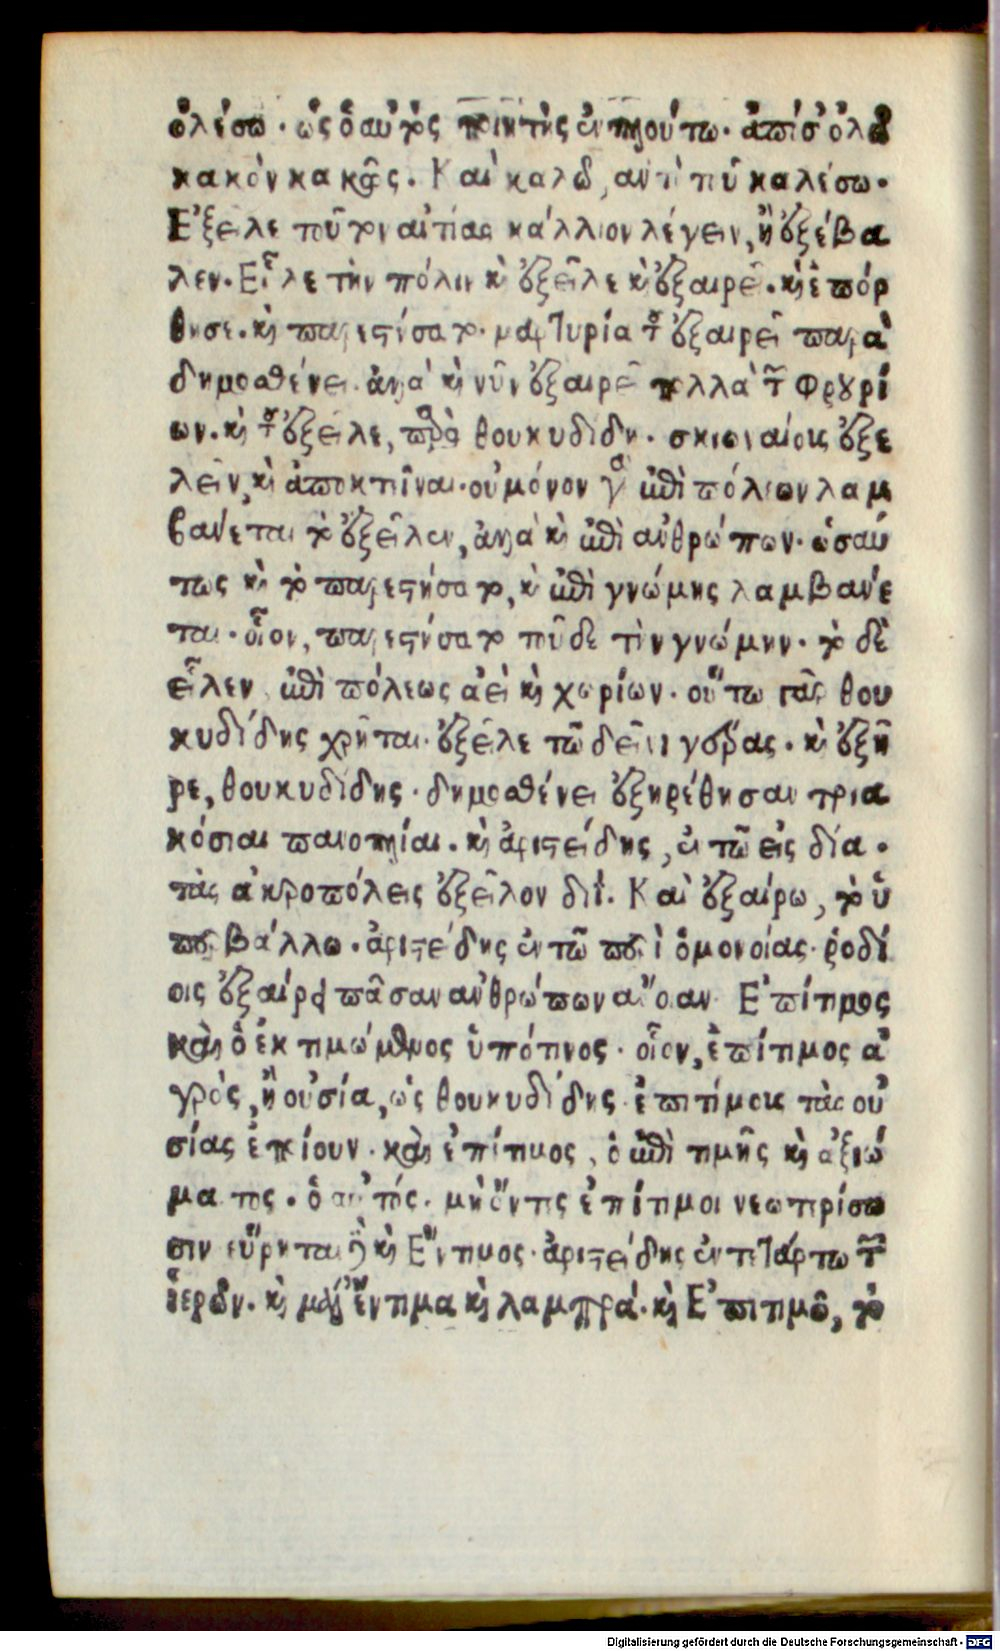 ὀλέσω. ὡς ὁ αὐτὸς ποιητὴς ἐν πλούτω. ἀπὸ σ' ὀλῶ
κακὸν κακῶς. Καὶ καλῶ, αὐτὶ τοῦ καλέσω.
Ἐξεῖλε τοῦτον αἰτίας κάλλιον λέγειν, ἢ ἐξέβα
λεν. Εἷλε τὴν πόλιν καὶ ἐξεῖλε καὶ ἐξαιρεῖ. καὶ ἐπόρ
θησε. καὶ παρεστήσατο. μαρτυρία τὸ ἐξαιρεῖ παρὰ
δημοσθένει. ἀλλὰ καὶ νῦν ἐξαιρεῖ πολλὰ τῶν φρουρί
ων. καὶ τὸ ἐξεῖλε, παρὰ θουκυδίδη. σκιωναίοις ἐξε
λεῖν, καὶ ἀποκτεῖναι. οὐ μόνον γὰρ ἐπὶ πόλεων λαμ
βάνεται τὸ ἐξεῖλεν, ἀλλὰ καὶ ἐπὶ ἀνθρώπων. ὡσαύ
τως καὶ τὸ παρεστήσατο, καὶ ἐπὶ γνώμης λαμβάνε
ται. οἷον, παρεστήσατο τοῦδε τὴν γνώμην. τὸ δὲ
εἷλεν ἐπὶ πόλεως ἀεὶ καὶ χωρίων. οὕτω γὰρ θου
κυδίδης χρῆται. ἐξεῖλε τῶ δεῖνι γέρας. καὶ ἐξῄ
ρει, θουκυδίδης. δημοσθένει ἐξηρέθησαν τρια
κόσιαι πανοπλίαι. καὶ ἀριστείδης, ἐν τῶ εἰς δία.
τὰς ἀκροπόλεις ἐξεῖλον διΐ. Καὶ ἐξαίρω, τὸ ὑ
περβάλλω. ἀριστείδης ἐν τῶ περὶ ὁμονοίας. ῥοδί
οις ἐξαίρει πᾶσαν ἀνθρώπων
Ἐπίτιμος
καὶ ὁ ἐκτιμώμενος ὑπό τινος. οἷον, ἐπίτιμος ἀ
γρὸς, ἢ οὐσία, ὡς θουκυδίδης. ἐπιτίμοις τὰς οὐ
σίας ἐποίουν. καὶ ἐπίτιμος, ὁ ἐπὶ τιμῆς καὶ ἀξιώ
ματος. ὁ αὐτός. μὴ ὄντες ἐπίτιμοι νεωτερίσω
σιν εὕρηται δὲ καὶ Ἔντιμος. ἀριστείδης ἐν τετάρτω τῶν
ἱερῶν. καὶ μάλ' ἔντιμα καὶ λαμπρά. καὶ Ἐπιτιμῶ, τὸ